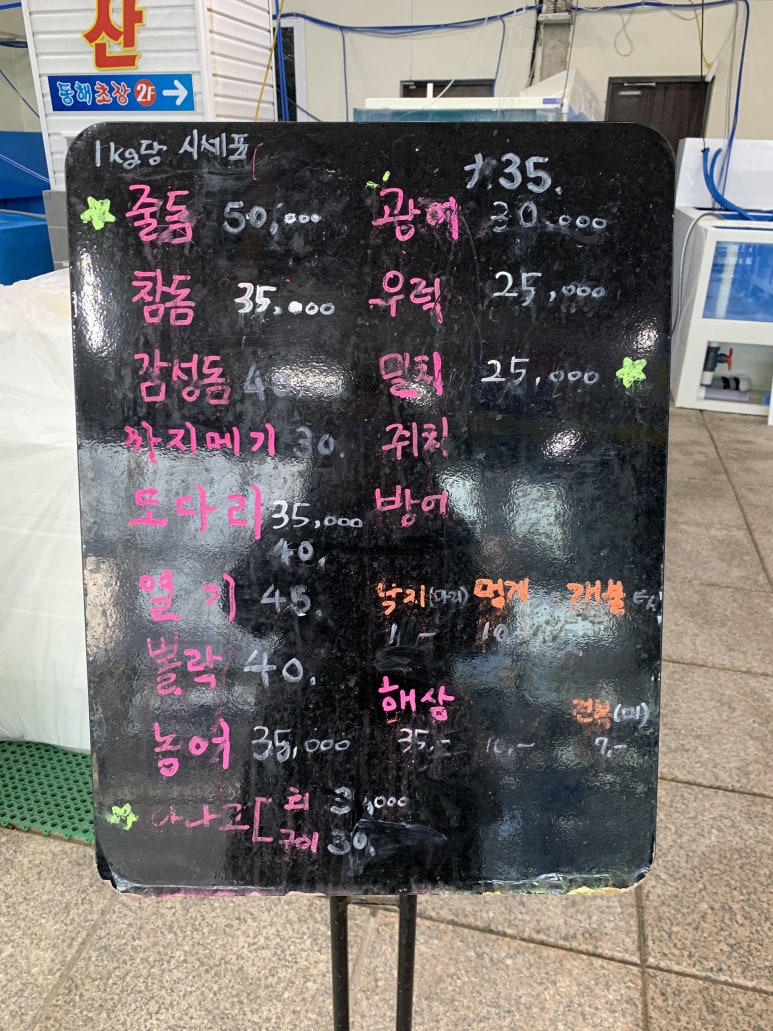 산
동해초장 2F →
1kg당 시세표
줄돔 50,000
참돔 35,000
감성돔 40
까지메기 30.
도다리 35,000
40.
열기 45.
뽈락 40.
농어 35,000
아나고 [ 회
구이 30.
大 35.
광어 30.000
우럭 25,000
밀치 25,000
쥐치
방어
낙지(마리) 멍게 개불
10
해삼 전복(미)
35,- 10,- 7,-